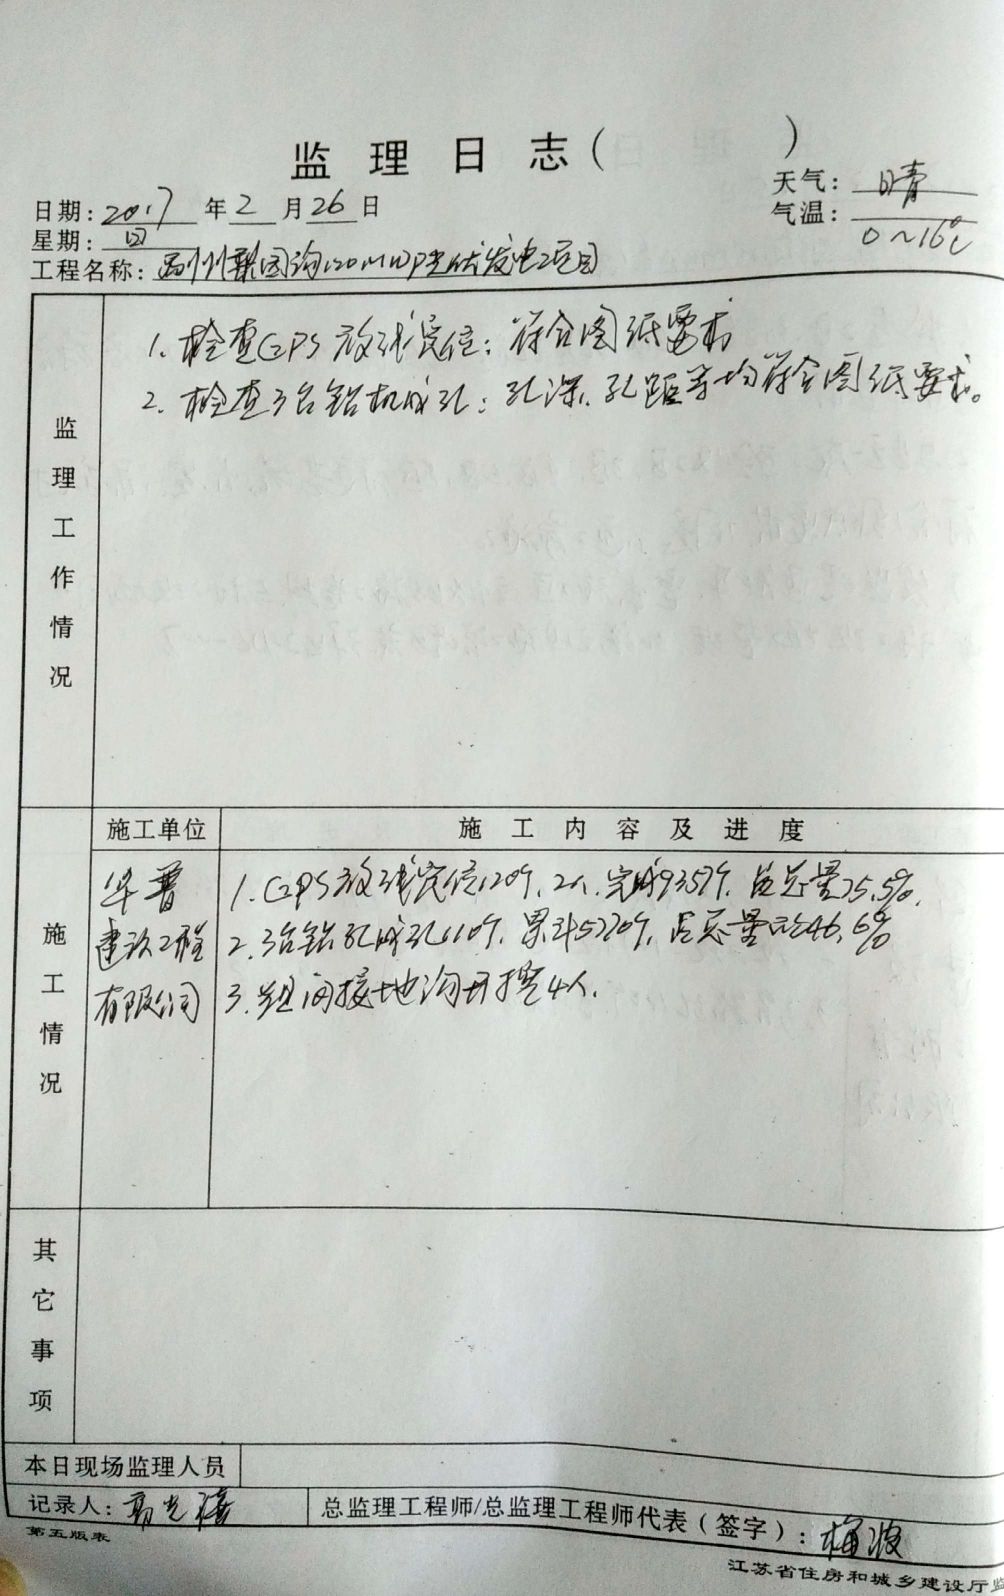 监理日志（ ）
天气：晴
日期：2017年2月26日
气温：0～16℃
星期：日
工程名称：禹州梨园沟120MWP光伏发电项目
监理工作情况
1. 检查GPS放线定位：符合图纸要求
2. 检查3台钻机成孔：孔深、孔距等均符合图纸要求。
施工单位
施工内容及进度
施工情况
华普
建设工程
有限公司
1. GPS放线定位120个, 2人. 完成9357个, 占总量75.5%.
2. 3台钻孔成孔110个, 累计5770个, 占总量46.6%
3. 组间接地沟开挖4人.
其它事项
本日现场监理人员
记录人：
总监理工程师/总监理工程师代表（签字）：梅波
第五版表
江苏省住房和城乡建设厅监